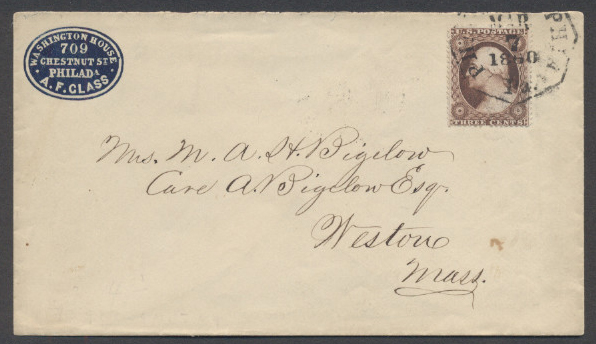 WASHINGTON HOUSE
709
CHESTNUT ST.
PHILADA
A.F. CLASS.
U.S. POSTAGE
THREE CENTS
MAR
7
1860
Pa.
Mrs. M. A. H. Bigelow
Care A. Bigelow Esq.
Weston
Mass.